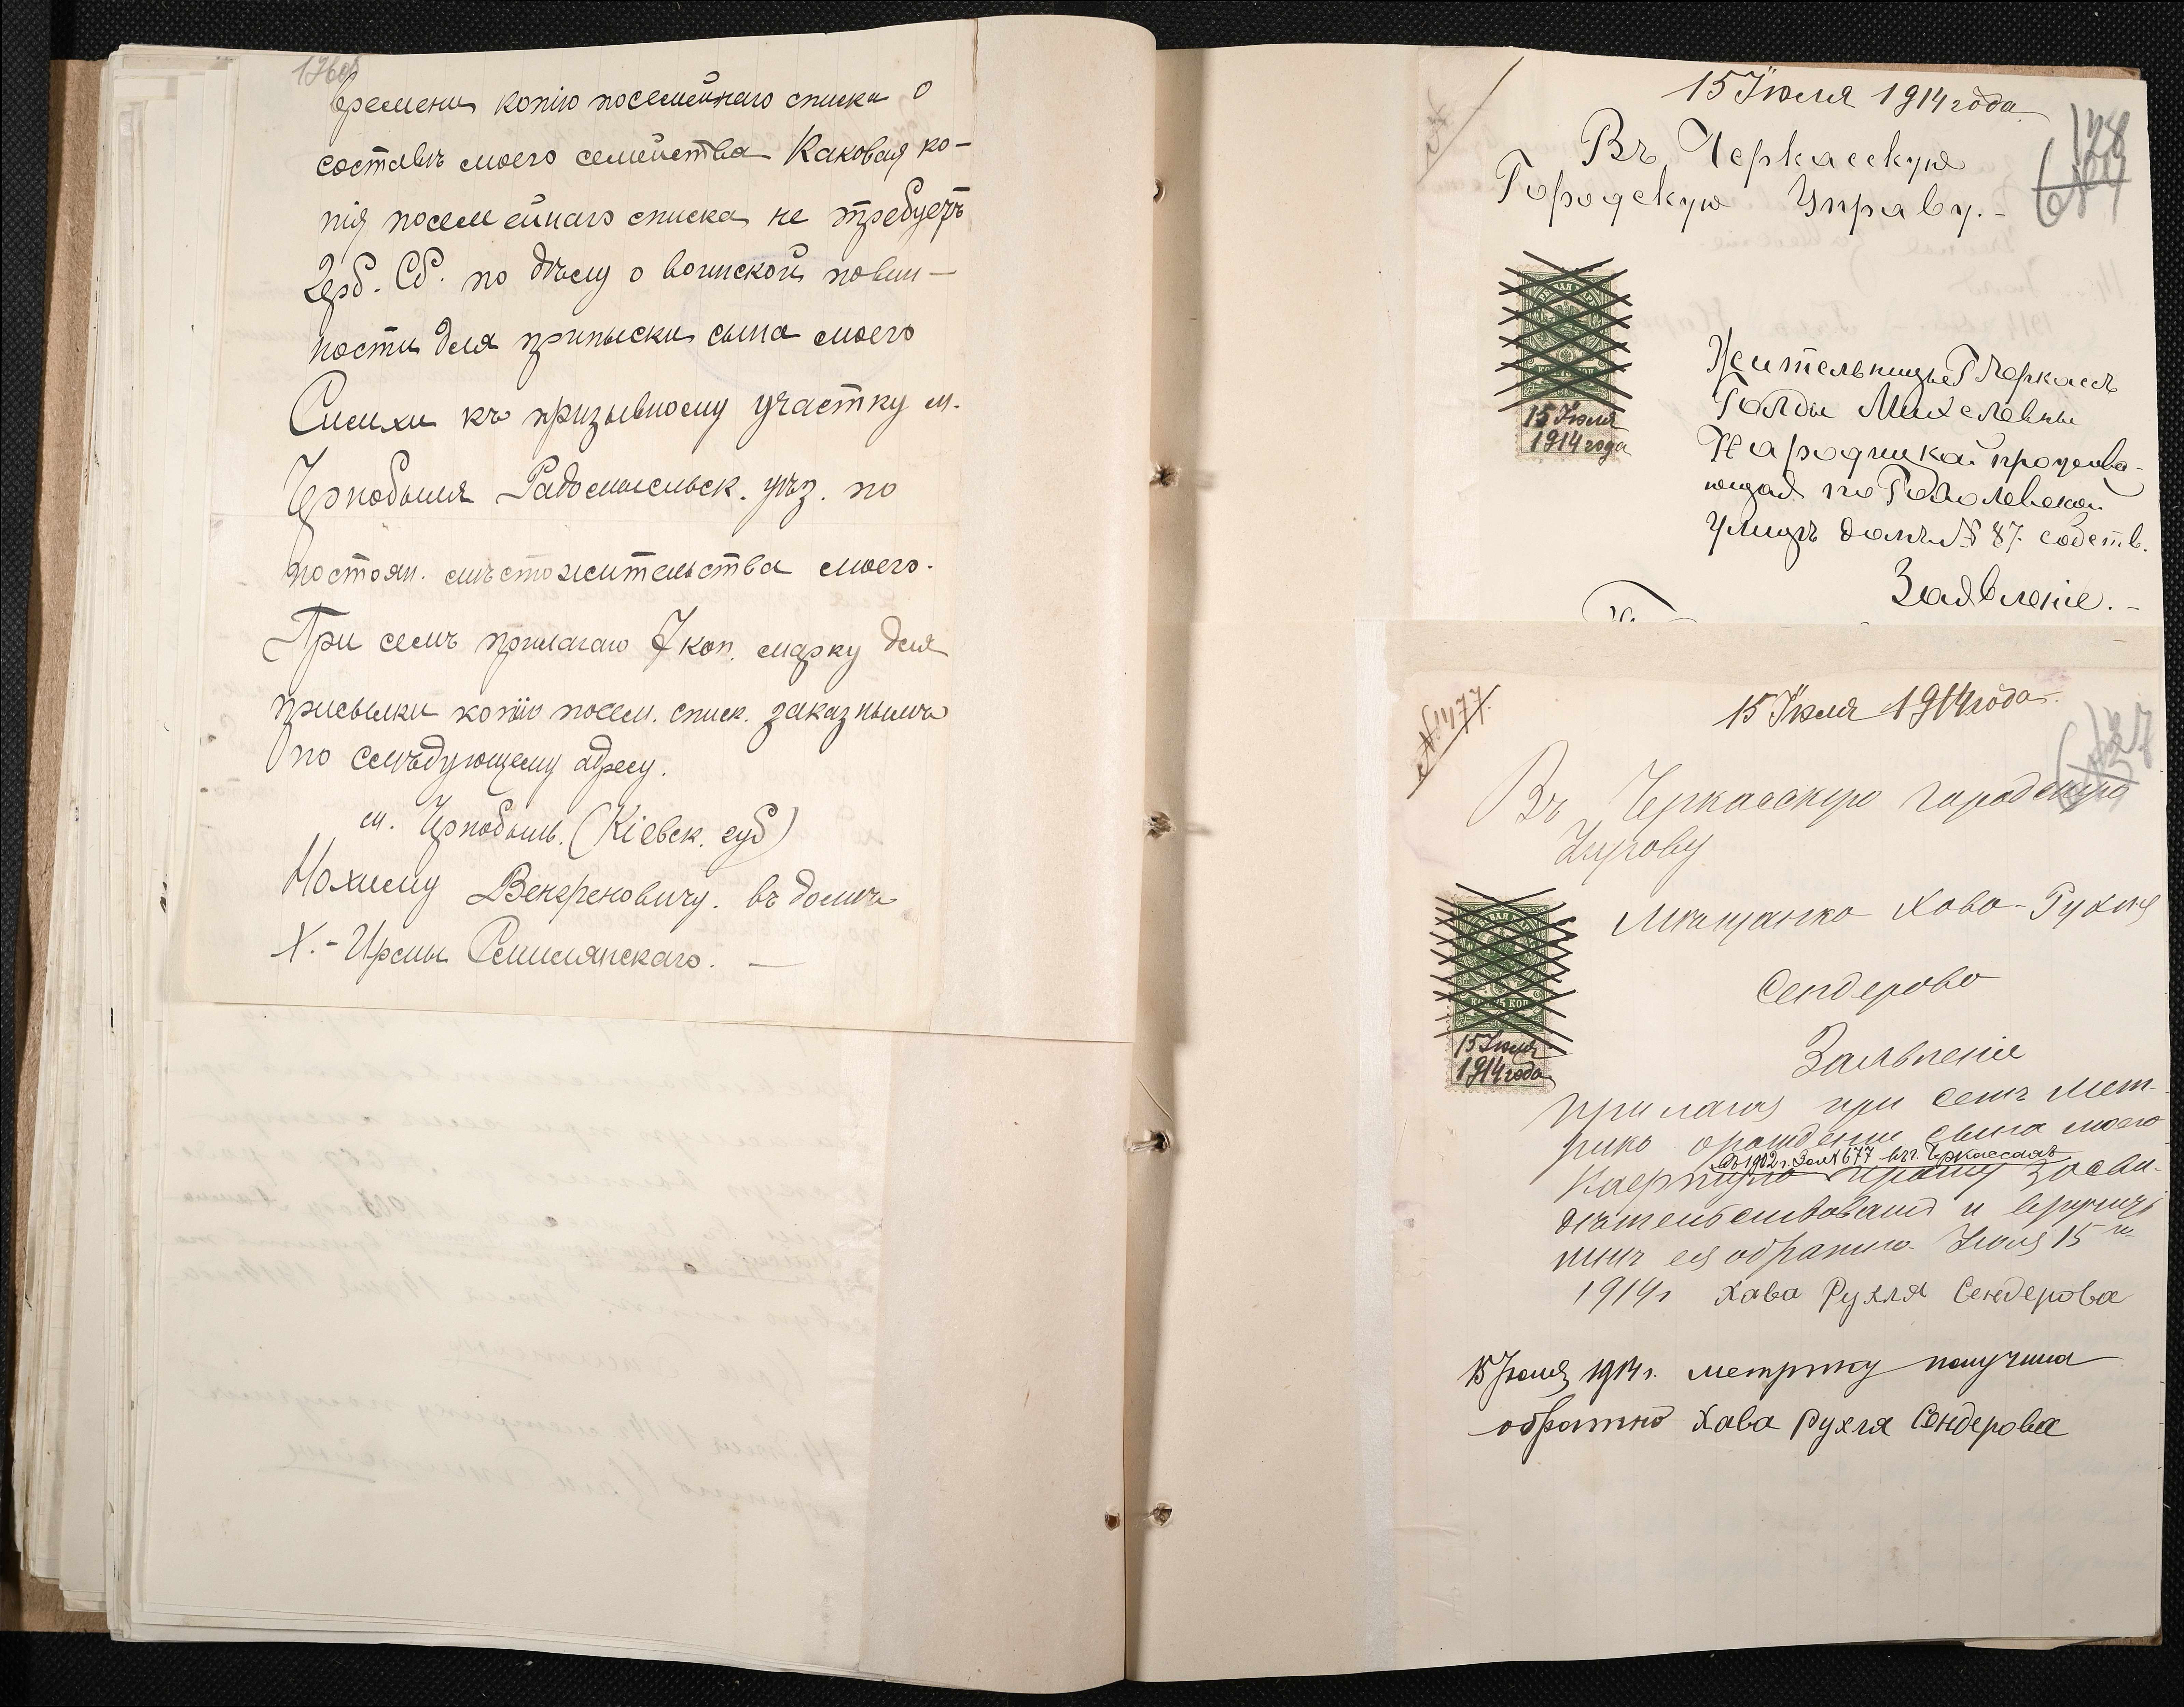 176об
времени копію посемейнаго списка о
составѣ моего семейства Каковая ко-
пія посемейнаго списка не требуетъ
Герб. Сб. по дѣлу о воинской повин-
ности для приписки сына моего
Симхи къ призывному участку м.
Чернобыля Радомысльск. уѣз. по
постоян. мѣстожительства моего.
При семъ прилагаю 7 коп. марку для
присылки копію посем. списк. заказнымъ
по слѣдующему адресу.
м. Чернобыль. (Кіевск. губ)
Нохиму Венгреновичу. въ домѣ
Х.-Ирмы Семилянскаго. —
15 Іюля 1914 года.
Въ Черкасскую
Городскую Управу.-
178
15 Іюля
1914 года
Жительницы Г Черкассъ
Голды Михелевны
Народицкой прожива-
ющая по Гоголевской
улицѣ домъ № 87. собств.
Заявленіе.-
№ 1477.
15 Іюля 1914 года.
Въ Черкасскую городскую
Управу
Мѣщанка Хава-Рухля
Сендерова
15 КОП
15 Іюля
1914 года
Заявленіе
Прилагая при семъ мет-
рику о рожденіи сына моего
въ 1902 г. За № 677 въ г. Черкассахъ
прошу засви-
дѣтельствовать и вручить
мнѣ ея обратно. Іюля 15 го
1914 г Хава Рухля Сендерова
15 Іюля 1914 г. метрику получила
обратно Хава Рухля Сендерова